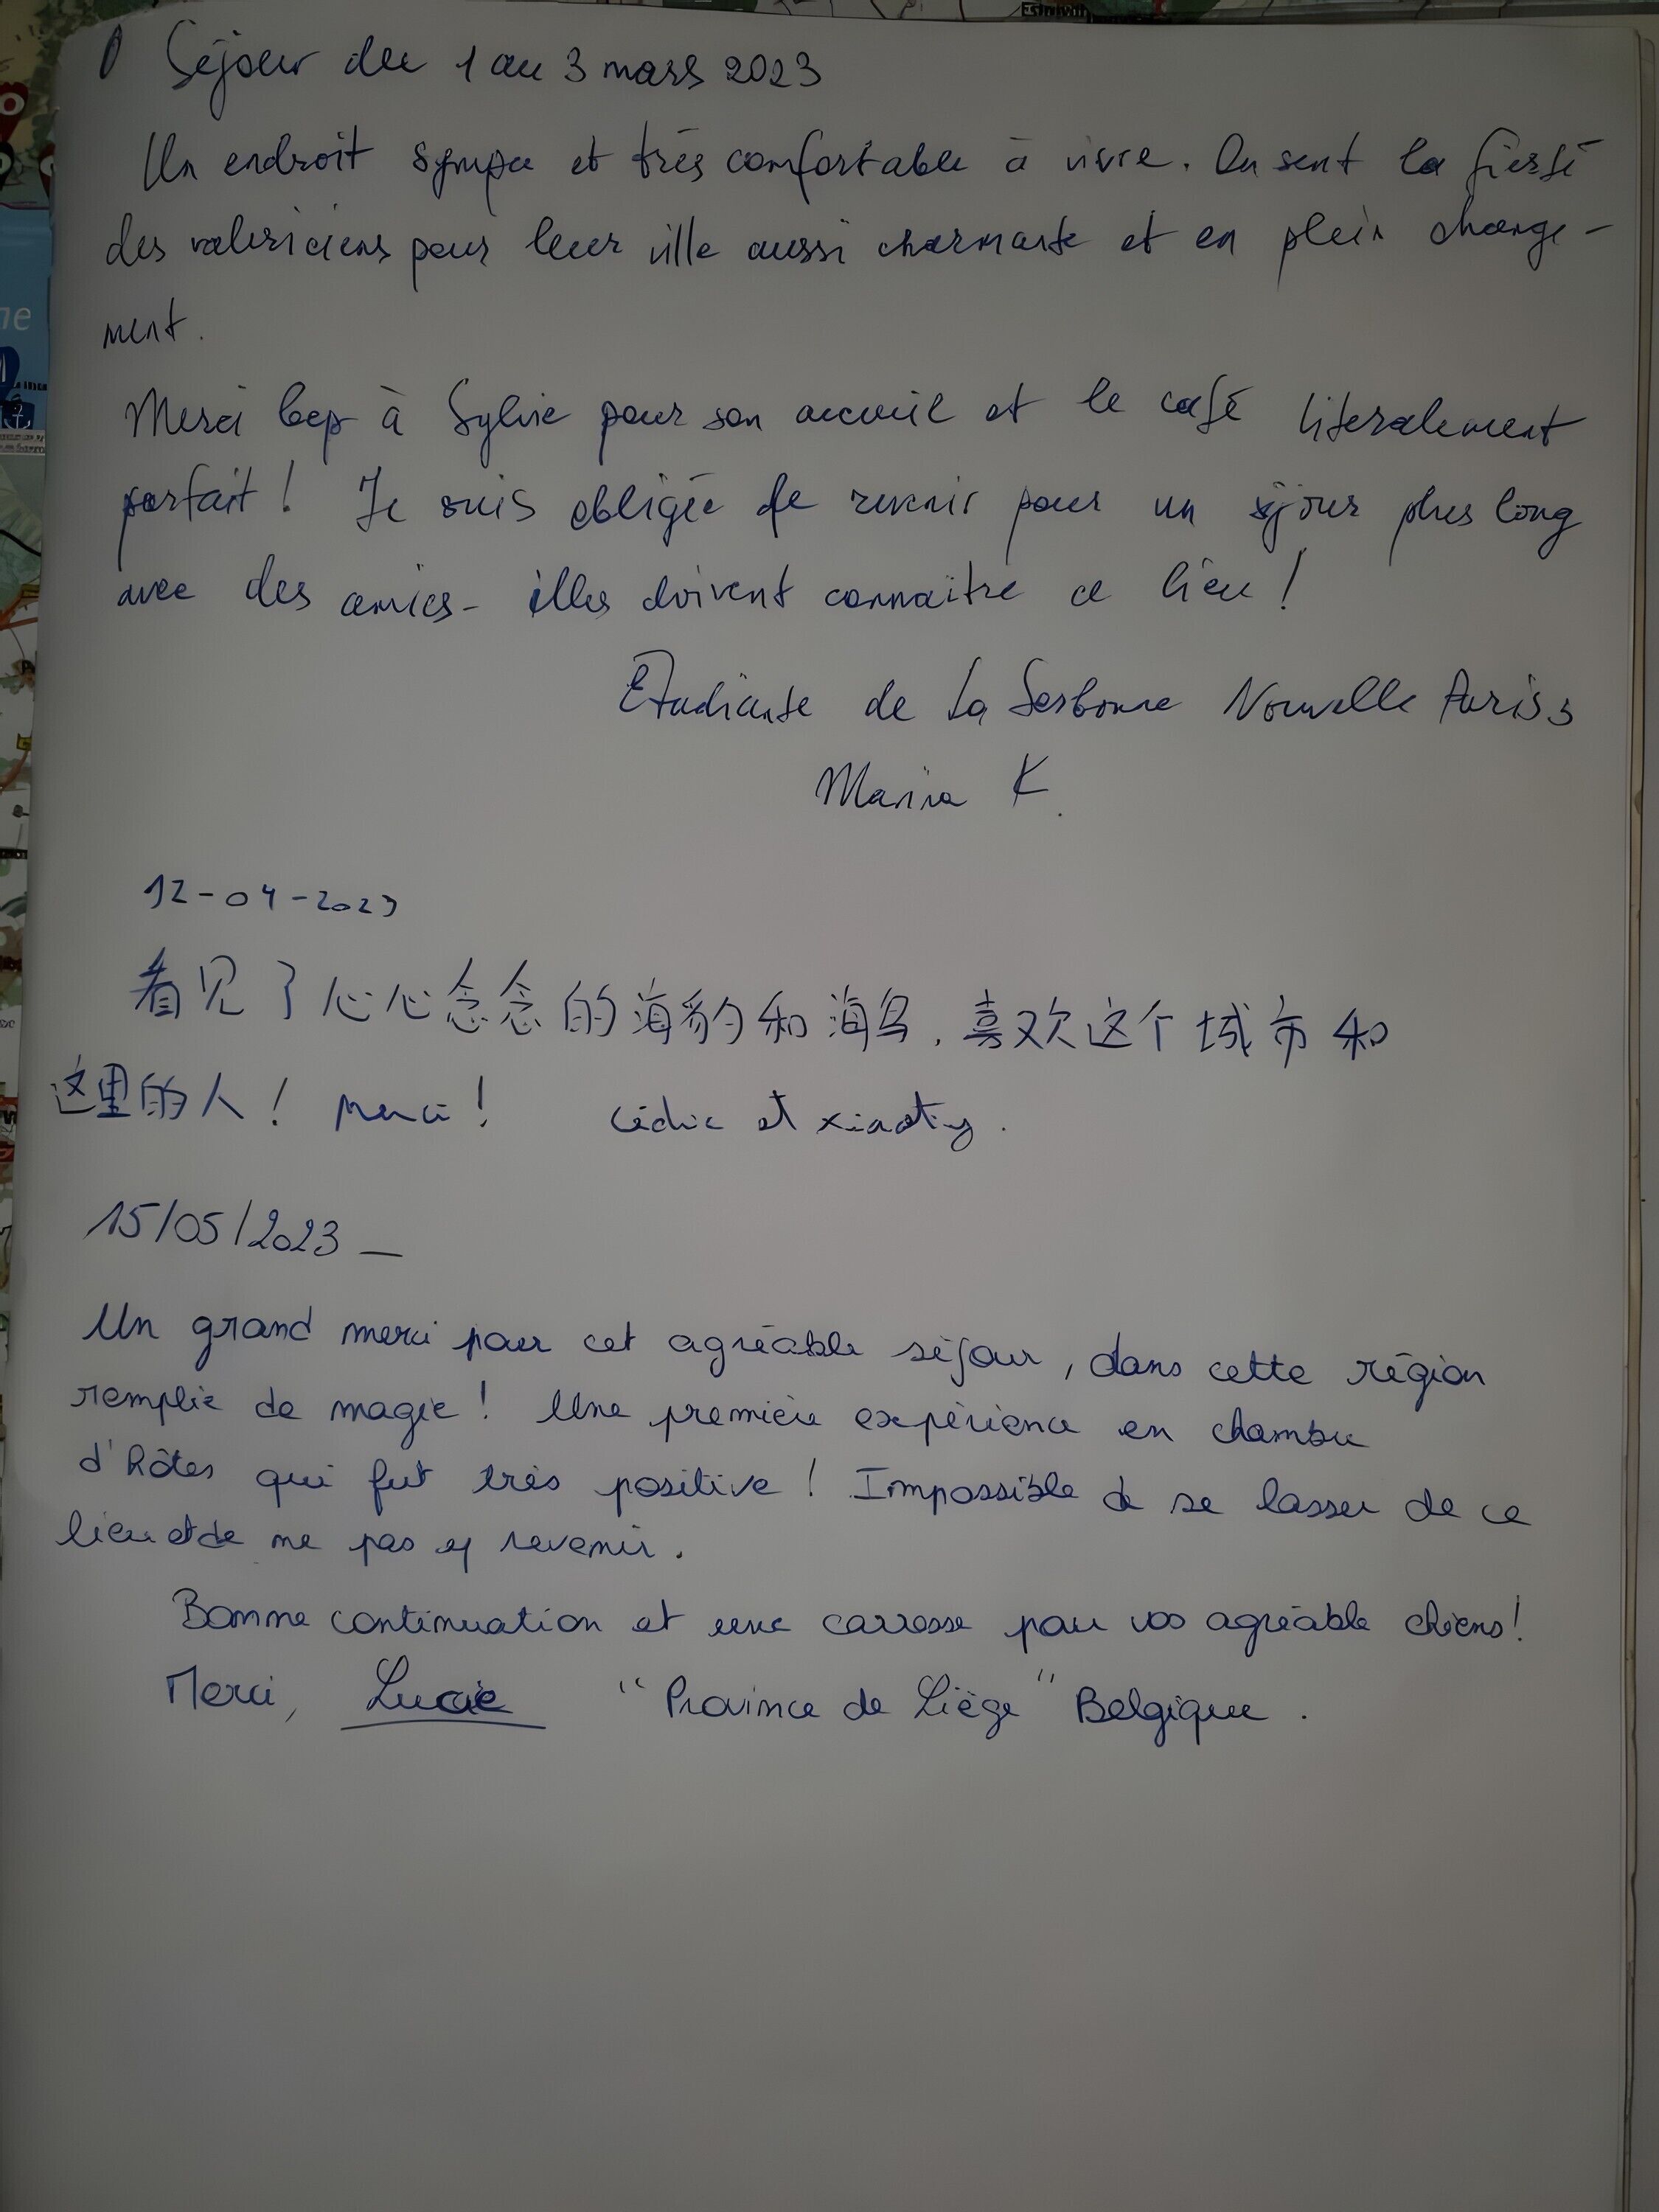 Séjour du 1 au 3 mars 2023
Un endroit sympa et très comfortable à vivre. On sent la fierté
des valericiens pour leur ville aussi charmante et en plein change-
ment.
Merci bcp à Sylvie pour son accueil et le café literalement
parfait ! Je suis obligée de revenir pour un séjour plus long
avec des amies - illes doivent connaitre ce lieu !
Etudiante de la Sorbonne Nouvelle Paris 3
Marina K.
12-04-2023
看见了心心念念的海豹和海鸟，喜欢这个城市和
这里的人！ Merci ! Cédric et xiaoting.
15/05/2023 _
Un grand merci pour cet agréable séjour, dans cette région
remplie de magie ! Une première expérience en chambre
d'hôtes qui fut très positive ! Impossible de se lasser de ce
lieu et de ne pas y revenir.
Bonne continuation et une caresse pour vos agréable chiens !
Merci, Lucie "Province de Liège" Belgique.